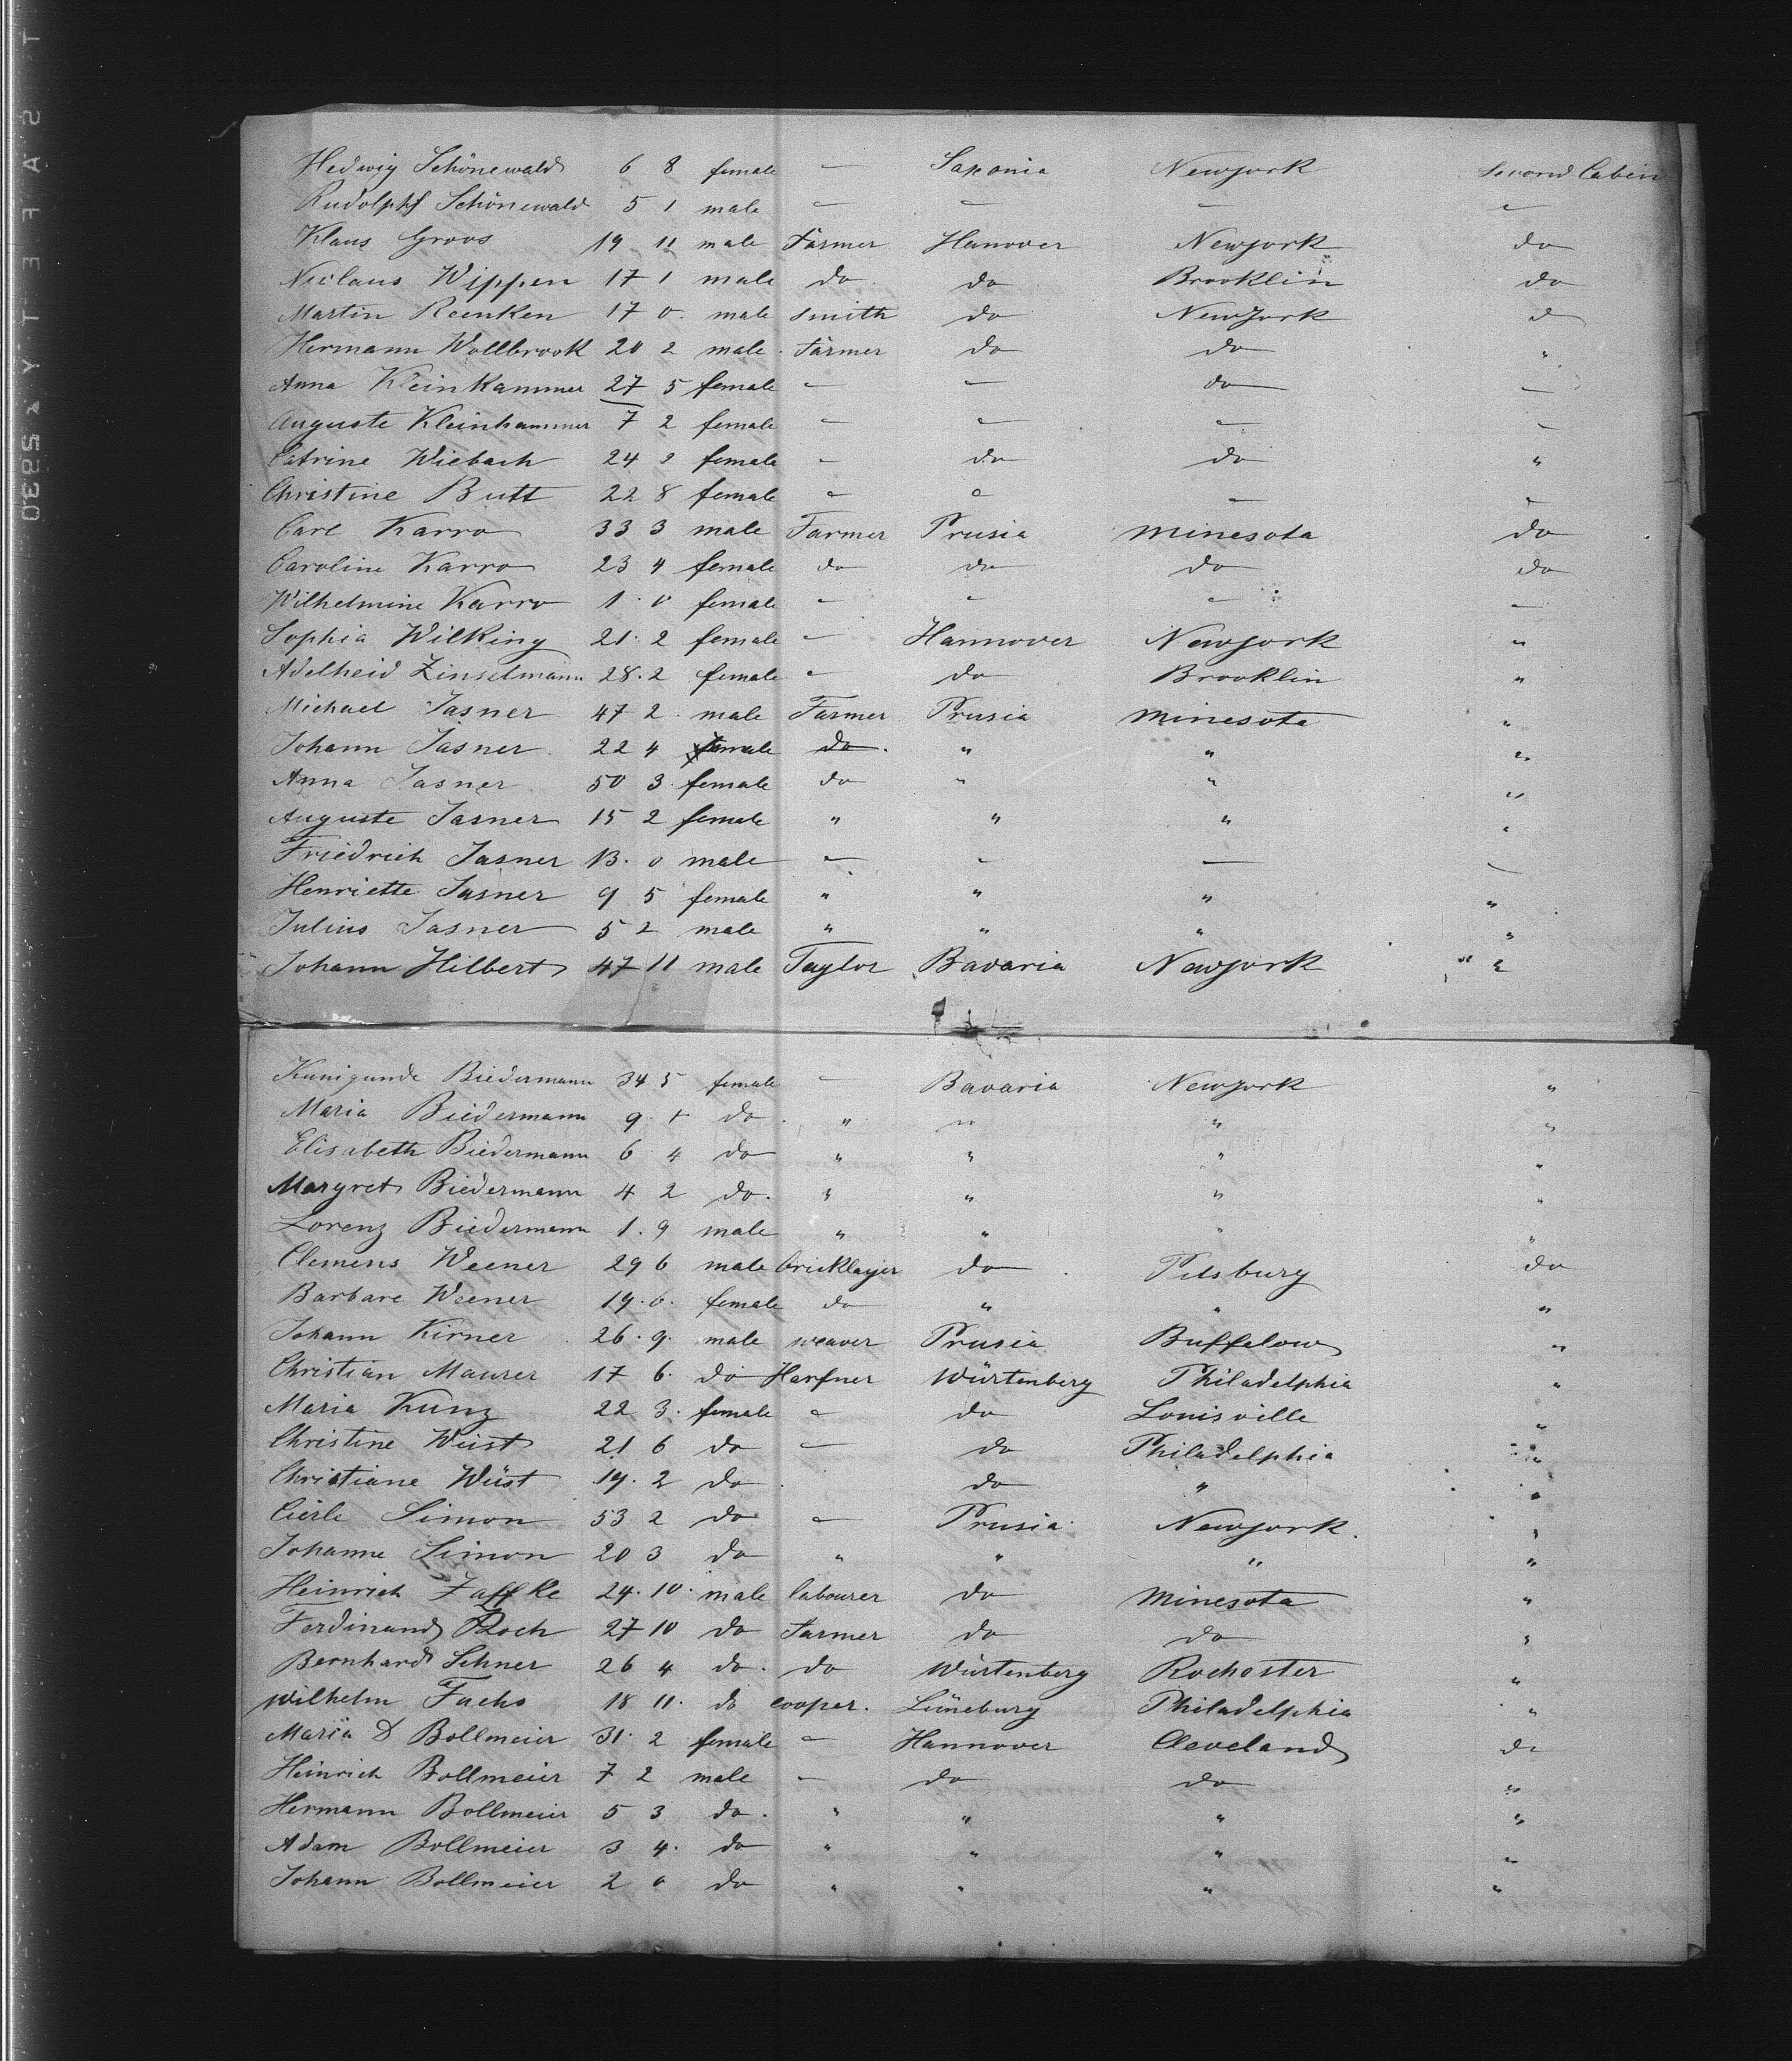 Hedwig Schönewald 6 8 female — Saxonia Newyork Second Cabin
Rudolphf Schönewald 5 1 male — — — —
Klaus Groos 19 11 male Farmer Hanover Newyork do
Niclaus Wippen 17 1 male do do Brooklin do
Martin Reenken 17 0. male smith do NewYork d
Hermann Wollbrook 20 2 male. Farmer do do "
Anna Kleinkammer 27 5 female — — do —
Auguste Kleinhammer 7 2 female — — — —
Catrine Wiebach 24 female — do do "
Christine Butt 22 8 female — — — —
Carl Karro 33 3 male Farmer Prusia Minesota do
Caroline Karro 23 4 female do do do do
Wilhelmine Karro 1. 0 female — — — —
Sophia Wilking 21. 2 female — Hannover Newyork "
Adelheid Zinselmann 28. 2 female — do Brooklin "
Michael Jasner 47 2. male Farmer Prusia Minesota "
Johann Jasner. 22 4 male do. " " "
Anna Jasner 50 3. female do " " "
Auguste Jasner 15 2 female " " " "
Friedrich Jasner 13. 0 male — — — —
Henriette Jasner 9 5 female " " " "
Julius Jasner 5 2 male " " " "
Johann Hilbert 47 11 male Taylor Bavaria Newyork "
Kunigunde Biedermann 34 5 female — Bavaria Newyork "
Maria Biedermann 9. 1 do. " " " "
Elisabeth Biedermann 6 4 do " " " "
Margret Biedermann 4 2 do. " " " "
Lorenz Biedermann 1. 9 male " " " "
Clemens Weener 29 6 male bricklayer do Pitsburg do
Barbare Weener 19. 6. female do " " "
Johann Kirner 26. 9. male weaver Prusia Buffelow "
Christian Maurer 17 6. do Harfner Würtenberg Philadelphia "
Maria Kunz 22 3. female — do Louisville "
Christine Wüst 21 6 do — do Philadelphia "
Christiane Wüst 19. 2 do do " "
Cierle Simon 53 2 do — Prusia Newyork. "
Johanne Simon 20 3 do " " " "
Heinrich Zaffke 24. 10. male labourer do Minesota "
Ferdinand Roch 27 10 do Farmer do do "
Bernhard Sehner 26 4 do. do Würtenberg Rochester "
Wilhelm Fuchs 18 11. do cooper. Lüneburg Philadelphia "
Maria D Bollmeier 31. 2 female — Hannover Cleveland do
Heinrich Bollmeier 7 2 male — do do "
Hermann Bollmeier 5 3 do. " " " "
Adam Bollmeier 3 4. do " " " "
Johann Bollmeier 2 0 do " " " "